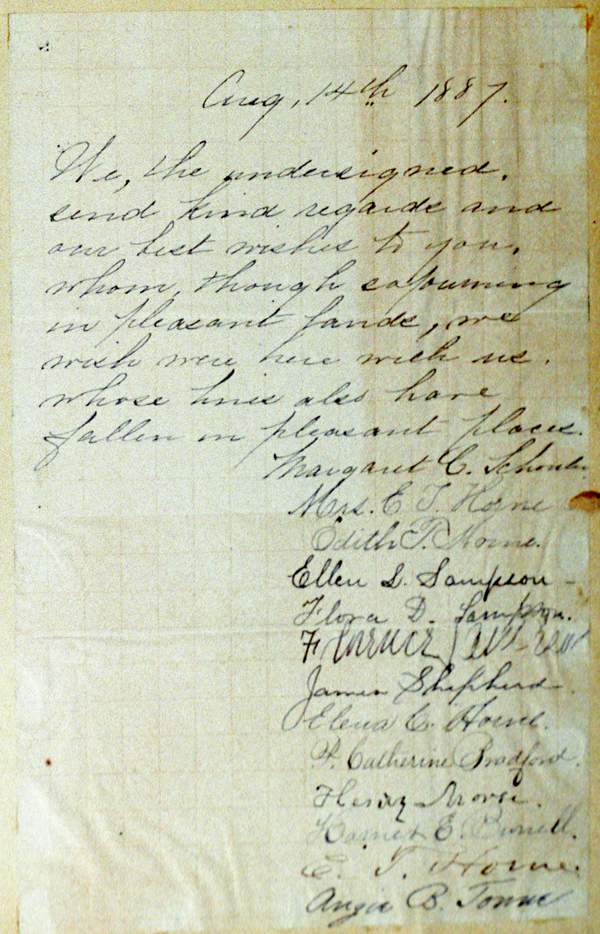 Aug, 14th 1887.
We, the undersigned,
send kind regards and
our best wishes to you,
whom, though sojourning
in pleasant lands, we
wish were here with us.
whose lines also have
fallen in pleasant places.
Margaret C.
Mrs. E. T. Horne
Edith T. Horne.
Ellen L. Sampson
Flora D. Sampson.
James Shepherd.
C. Horne.
Catherine Bradford.
Henry Morse.
Harriet E. Burrell.
E. T. Horne.
Angie B.